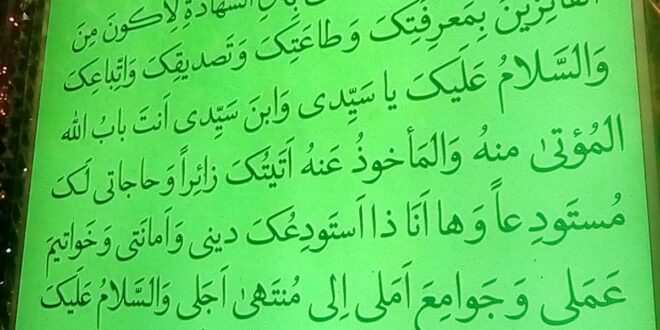 بِاَنِّ الشَّهادَةِ لِاَکونَ مِنَ
الفائِزینَ بِمَعرِفَتِکَ وَ طاعَتِکَ وَ تَصدیقِکَ وَ اتِّباعِکَ
وَالسَّلامُ عَلَیکَ یا سَیِّدی وَابنَ سَیِّدی اَنتَ بابُ الله
المُؤتیٰ مِنهُ وَالمَأخوذُ عَنهُ اَتَیتُکَ زائِراً وَ حاجاتی لَکَ
مُستَودِعاً وَ ها اَنَا ذا اَستَودِعُکَ دینی وَ اَمانَتی وَ خَواتیمَ
عَمَلی وَ جَوامِعَ اَمَلی اِلی مُنتَهیٰ اَجَلی وَالسَّلامُ عَلَیکَ